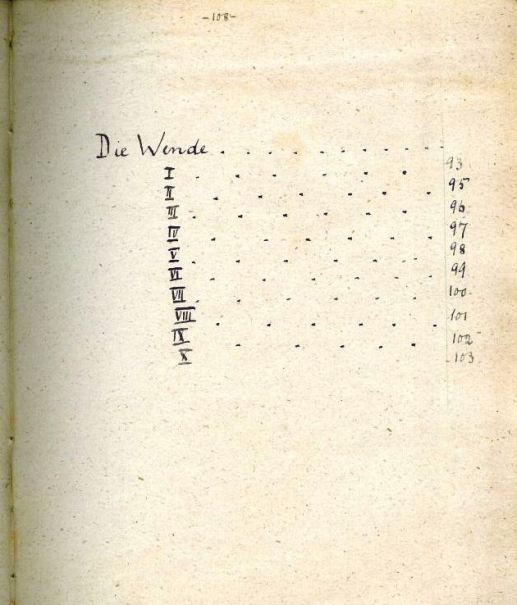 -108-
Die Wende . . . . . . . . . . 93
I . . . . . . 95
II . . . . . . 96
III . . . . . . 97
IV . . . . . . 98
V . . . . . . 99
VI . . . . . . 100
VII . . . . . . 101
VIII . . . . . . 102
IX . . . . . . 103
X